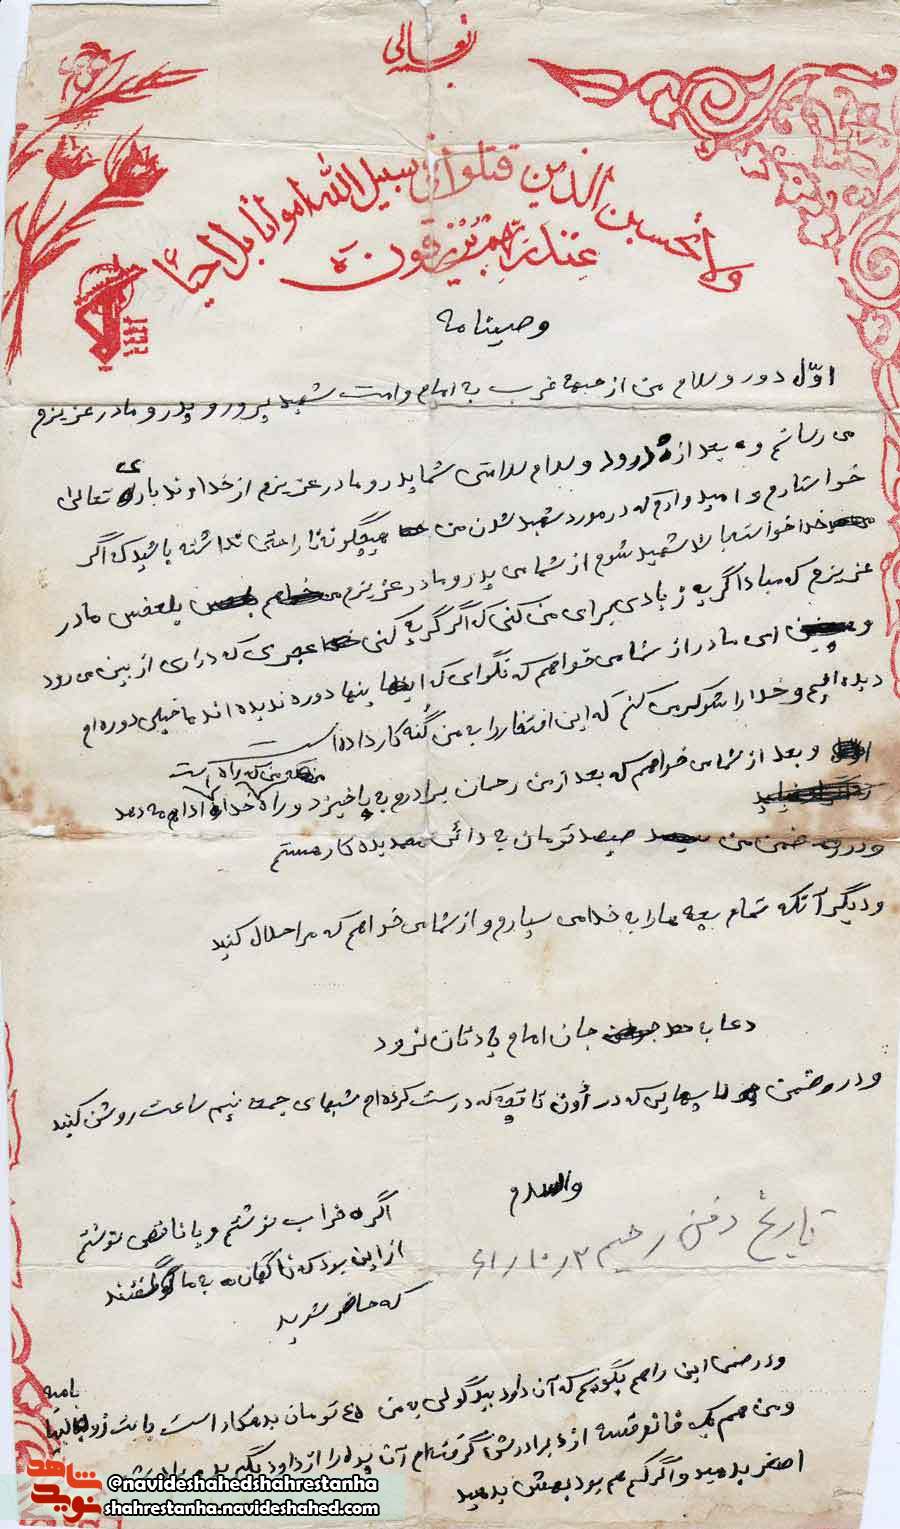 تعالی
ولا تحسبن الذین قتلوا فی سبیل الله امواتا بل احیاء
عند ربهم یرزقون
وصیتنامه
اوّل دورو سلام من از جبهه غرب به امام و امت شهید پرور و پدر و مادر عزیزم
می رسانم و بعد از درود و سلام سلامتی شما پدر و مادر عزیزم از خداوند باری تعالی
خواستارم و امیدوارم که در مورد شهید شدن من هیچگونه ناراحتی نداشته باشید که اگر
خدا خواسته با شهید شوم از شما می پدر و مادر عزیزم می خواهم بلعفس مادر
عزیزم که مبادا گریه زیادی برای من کنی که اگر گریه کنی عجری که داری از بین می رود
و ای مادر از شما می خواهم که نگوای که اینها دوره ندیده اند ما خیلی دوره ام
دیده ایم و خدا را شوکر می کنم که این افتخار را به من گنه کار داده است
و بعد از شما می خواهم که بعد از من رحمان برادرم به پا خیزد و راه من که راه خدا است ادامه دهد
و در ضمن من صیصد تومان به دائی بدهکار هستم
و دیگر آنکه تمام بچه ها را به خدا می سپارم و از شما می خواهم که مرا حلال کنید
دعا به جان امام یادتان نرود
و در ضمن لا مپهایی که در اون تاقچه که درست کرده ام شبهای جمعه نیم ساعت روشن کنید
والسلام
تاریخ دفن رحیم ۶۱/۱۰/۳
اگر خراب نوشتم و یا ناقص نوشتم
از این بود که ناگهان به ما گفتند
که حاضر شوید
و در ضمن این را هم بگویم که آن داود بیدگولی به من ۴۵ تومان بدهکار است بابت
و من هم یک فانوسقه از برادرش گرفته ام آن پول را از داود بگیرید
اصغر بدهید و اگر کم هم بود بهش بدهید
نوید شاهد
©navideshahedshahrestanha
shahrestanha.navideshahed.com